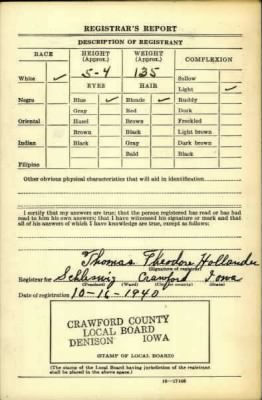 REGISTRAR'S REPORT
DESCRIPTION OF REGISTRANT
RACE HEIGHT (Approx.) WEIGHT (Approx.) COMPLEXION
White ✓ 5-4 135 Sallow
EYES HAIR Light ✓
Negro Blue ✓ Blonde ✓ Ruddy
Gray Red Dark
Oriental Hazel Brown Freckled
Brown Black Light brown
Indian Black Gray Dark brown
Bald Black
Filipino
Other obvious physical characteristics that will aid in identification
I certify that my answers are true; that the person registered has read or has had
read to him his own answers; that I have witnessed his signature or mark and that
all of his answers of which I have knowledge are true, except as follows:
Thomas Theodore Hollander
(Signature of registrar)
Registrar for Schleswig Crawford Iowa
(Precinct) (Ward) (City or county) (State)
Date of registration 10-16-1940
CRAWFORD COUNTY
LOCAL BOARD
DENISON IOWA
(STAMP OF LOCAL BOARD)
(The stamp of the Local Board having jurisdiction of the registrant
shall be placed in the above space.)
16—17105